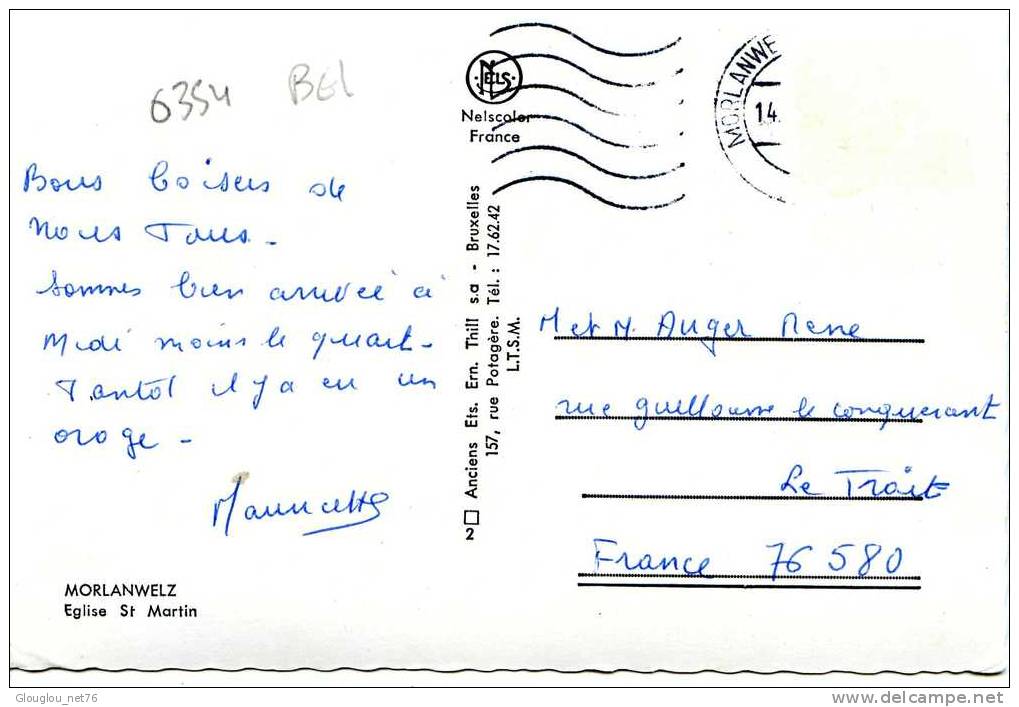 6354 BEL
NELS
Nelscolor
France
MORLANWE
14.
Bons baisers de
nous Tous -
Sommes bien arrivée à
Midi moins le quart -
Tantôt il y a eu un
orage -
MORLANWELZ
Eglise St Martin
2
Anciens Ets. Ern. Thill s.a - Bruxelles
157, rue Potagère. Tél. : 17.62.42
L.T.S.M.
M et M. Auger Rene
rue guillaume le conquerant
Le Trait
France 76580
Glouglou_net76
delcampe.net